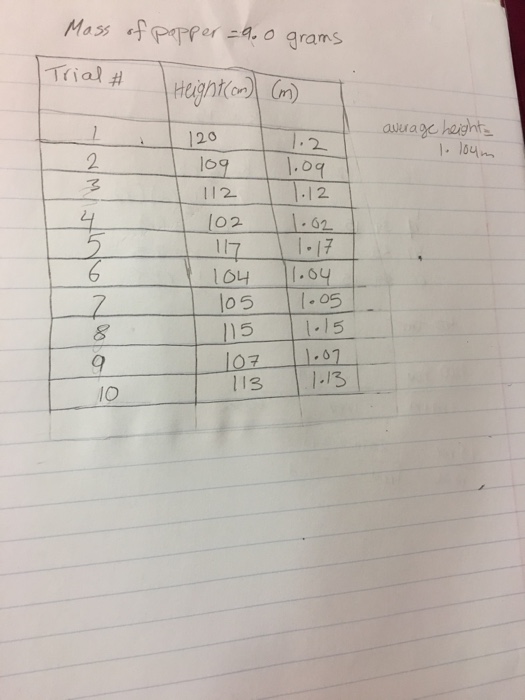 Mass of popper = 9.0 grams
Trial # Height(cm) (m)
average height =
1.104m
1 120 1.2
2 109 1.09
3 112 1.12
4 102 1.02
5 117 1.17
6 104 1.04
7 105 1.05
8 115 1.15
9 107 1.07
10 113 1.13